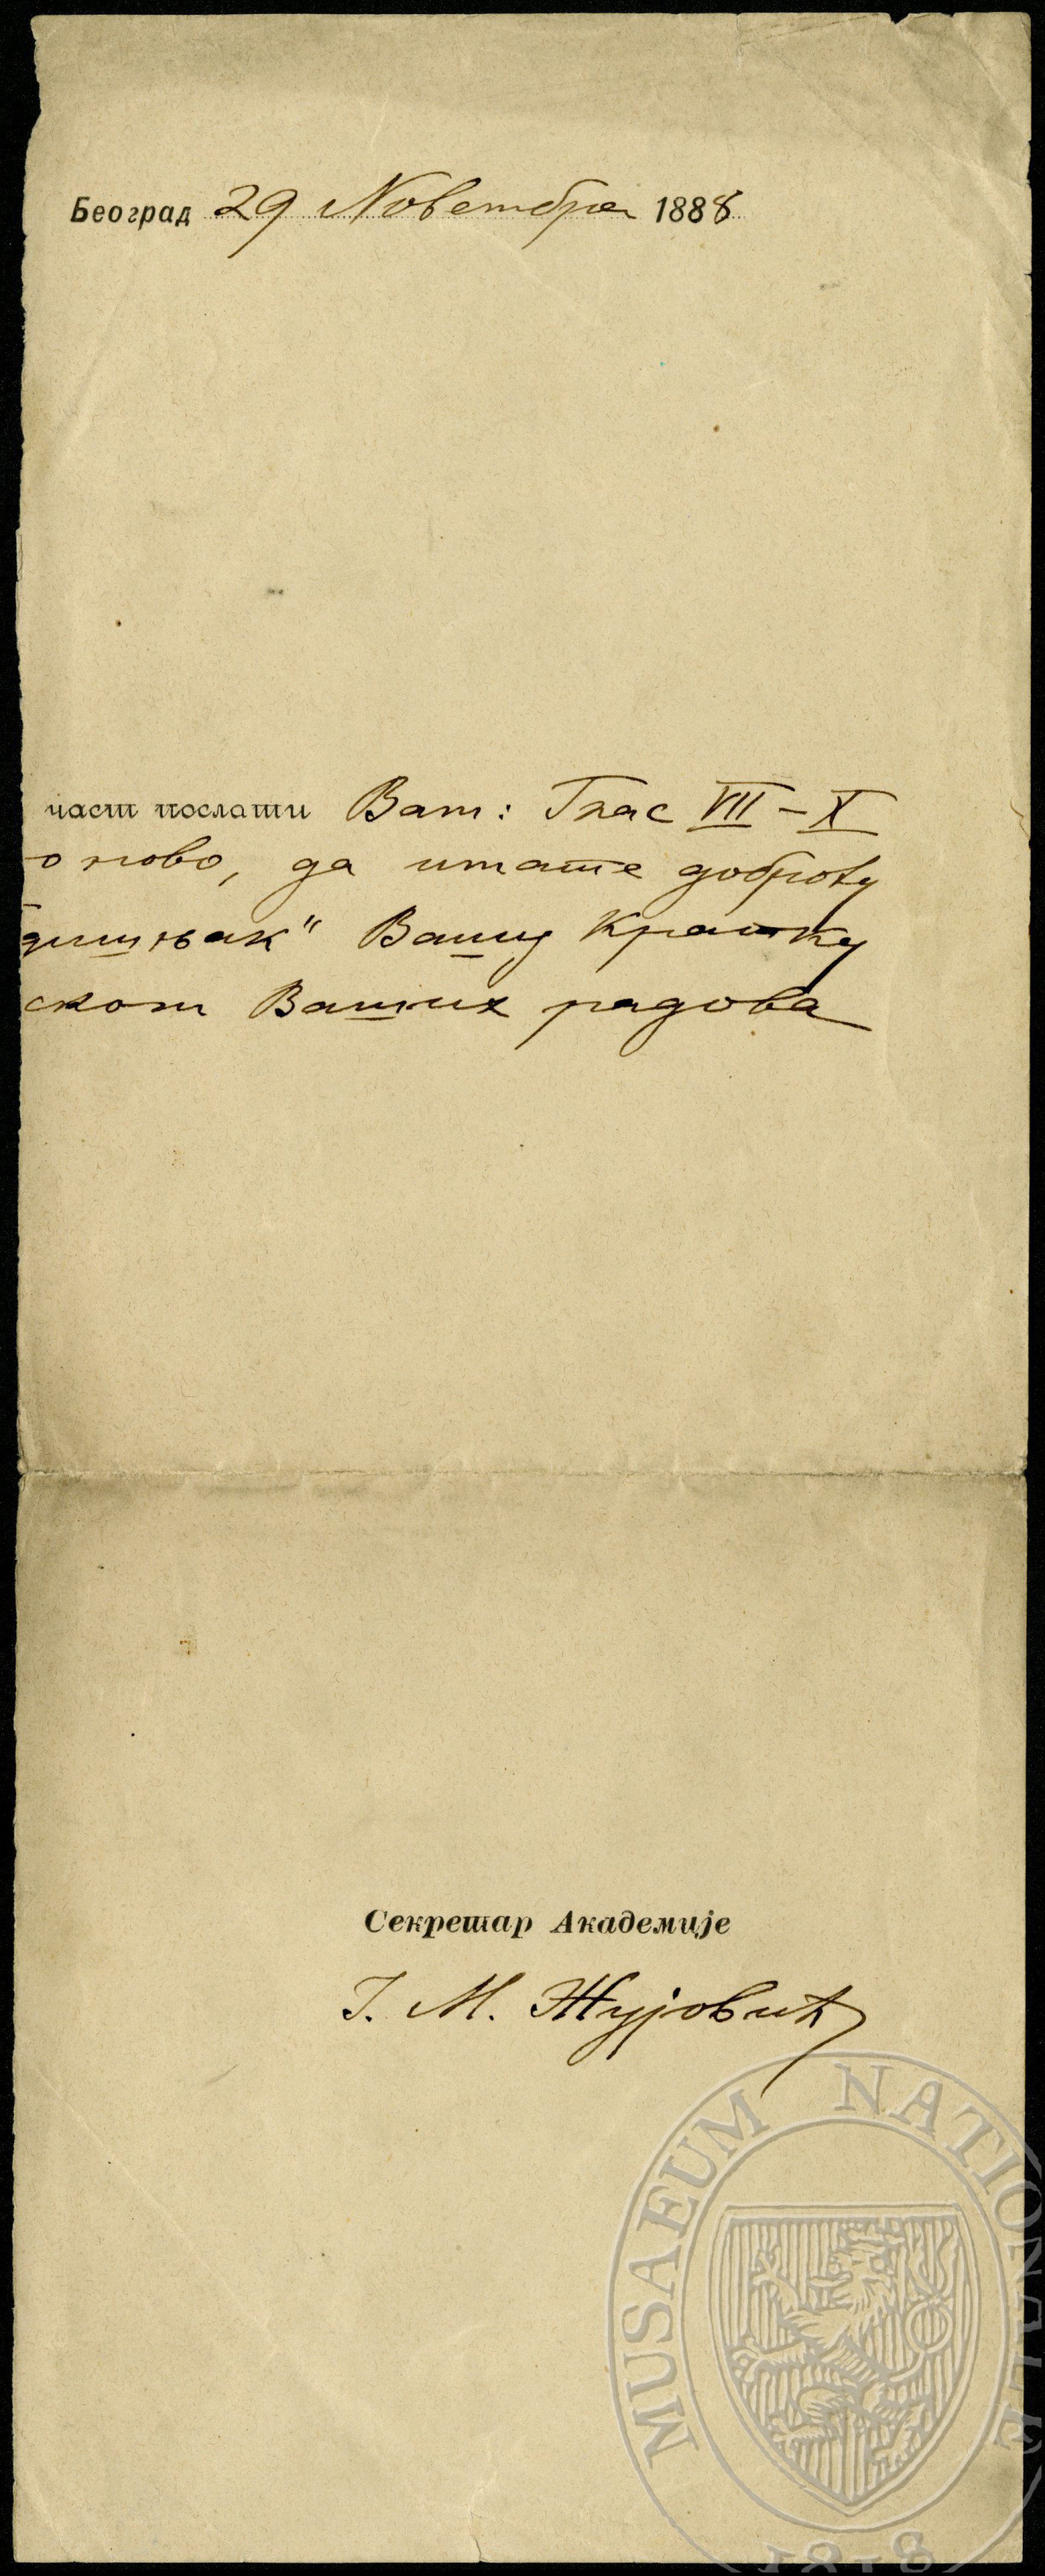 Београд 29 Новембра 1888
част послати Вам: Глас VII – X
о ново, да имате доброту
дишњак" Вашу кратку
ском Ваших радова
Секретар Академије
Ј. М. Жујовић
MUSAEUM NATIONALE
1818